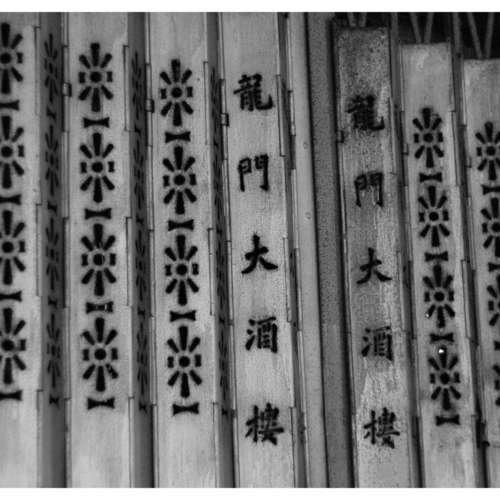 龍門大酒樓
龍門大酒樓